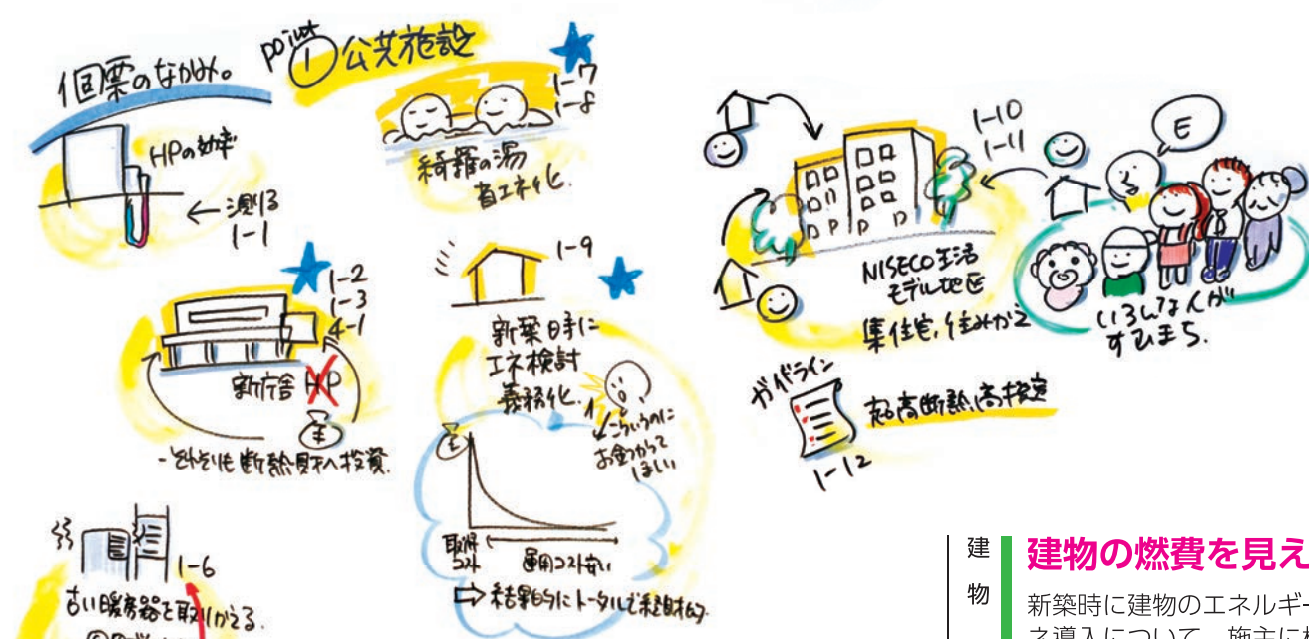 個票のなかみ。
point
① 公共施設
HPの効率
← 深掘
1-1
1-7
1-8
綺羅の湯
省エネ化.
1-2
1-3
4-1
新庁舎 HP
¥
-そもそも断熱財へ投資.
1-9
新築時に
エネ検討
義務化.
こういうのに
お金つかって
ほしい
¥
取得
コスト
運用コスト安い
⇒ 結果的にトータルで経済的.
1-6
古い暖房器を取りかえる.
1-10
1-11
E
NISECO生活
モデル地区
集住宅, 住みかえ
いろんな人が
すむまち.
ガイドライン
超高断熱,高検定
1-12
建物
建物の燃費を見え
新築時に建物のエネルギー